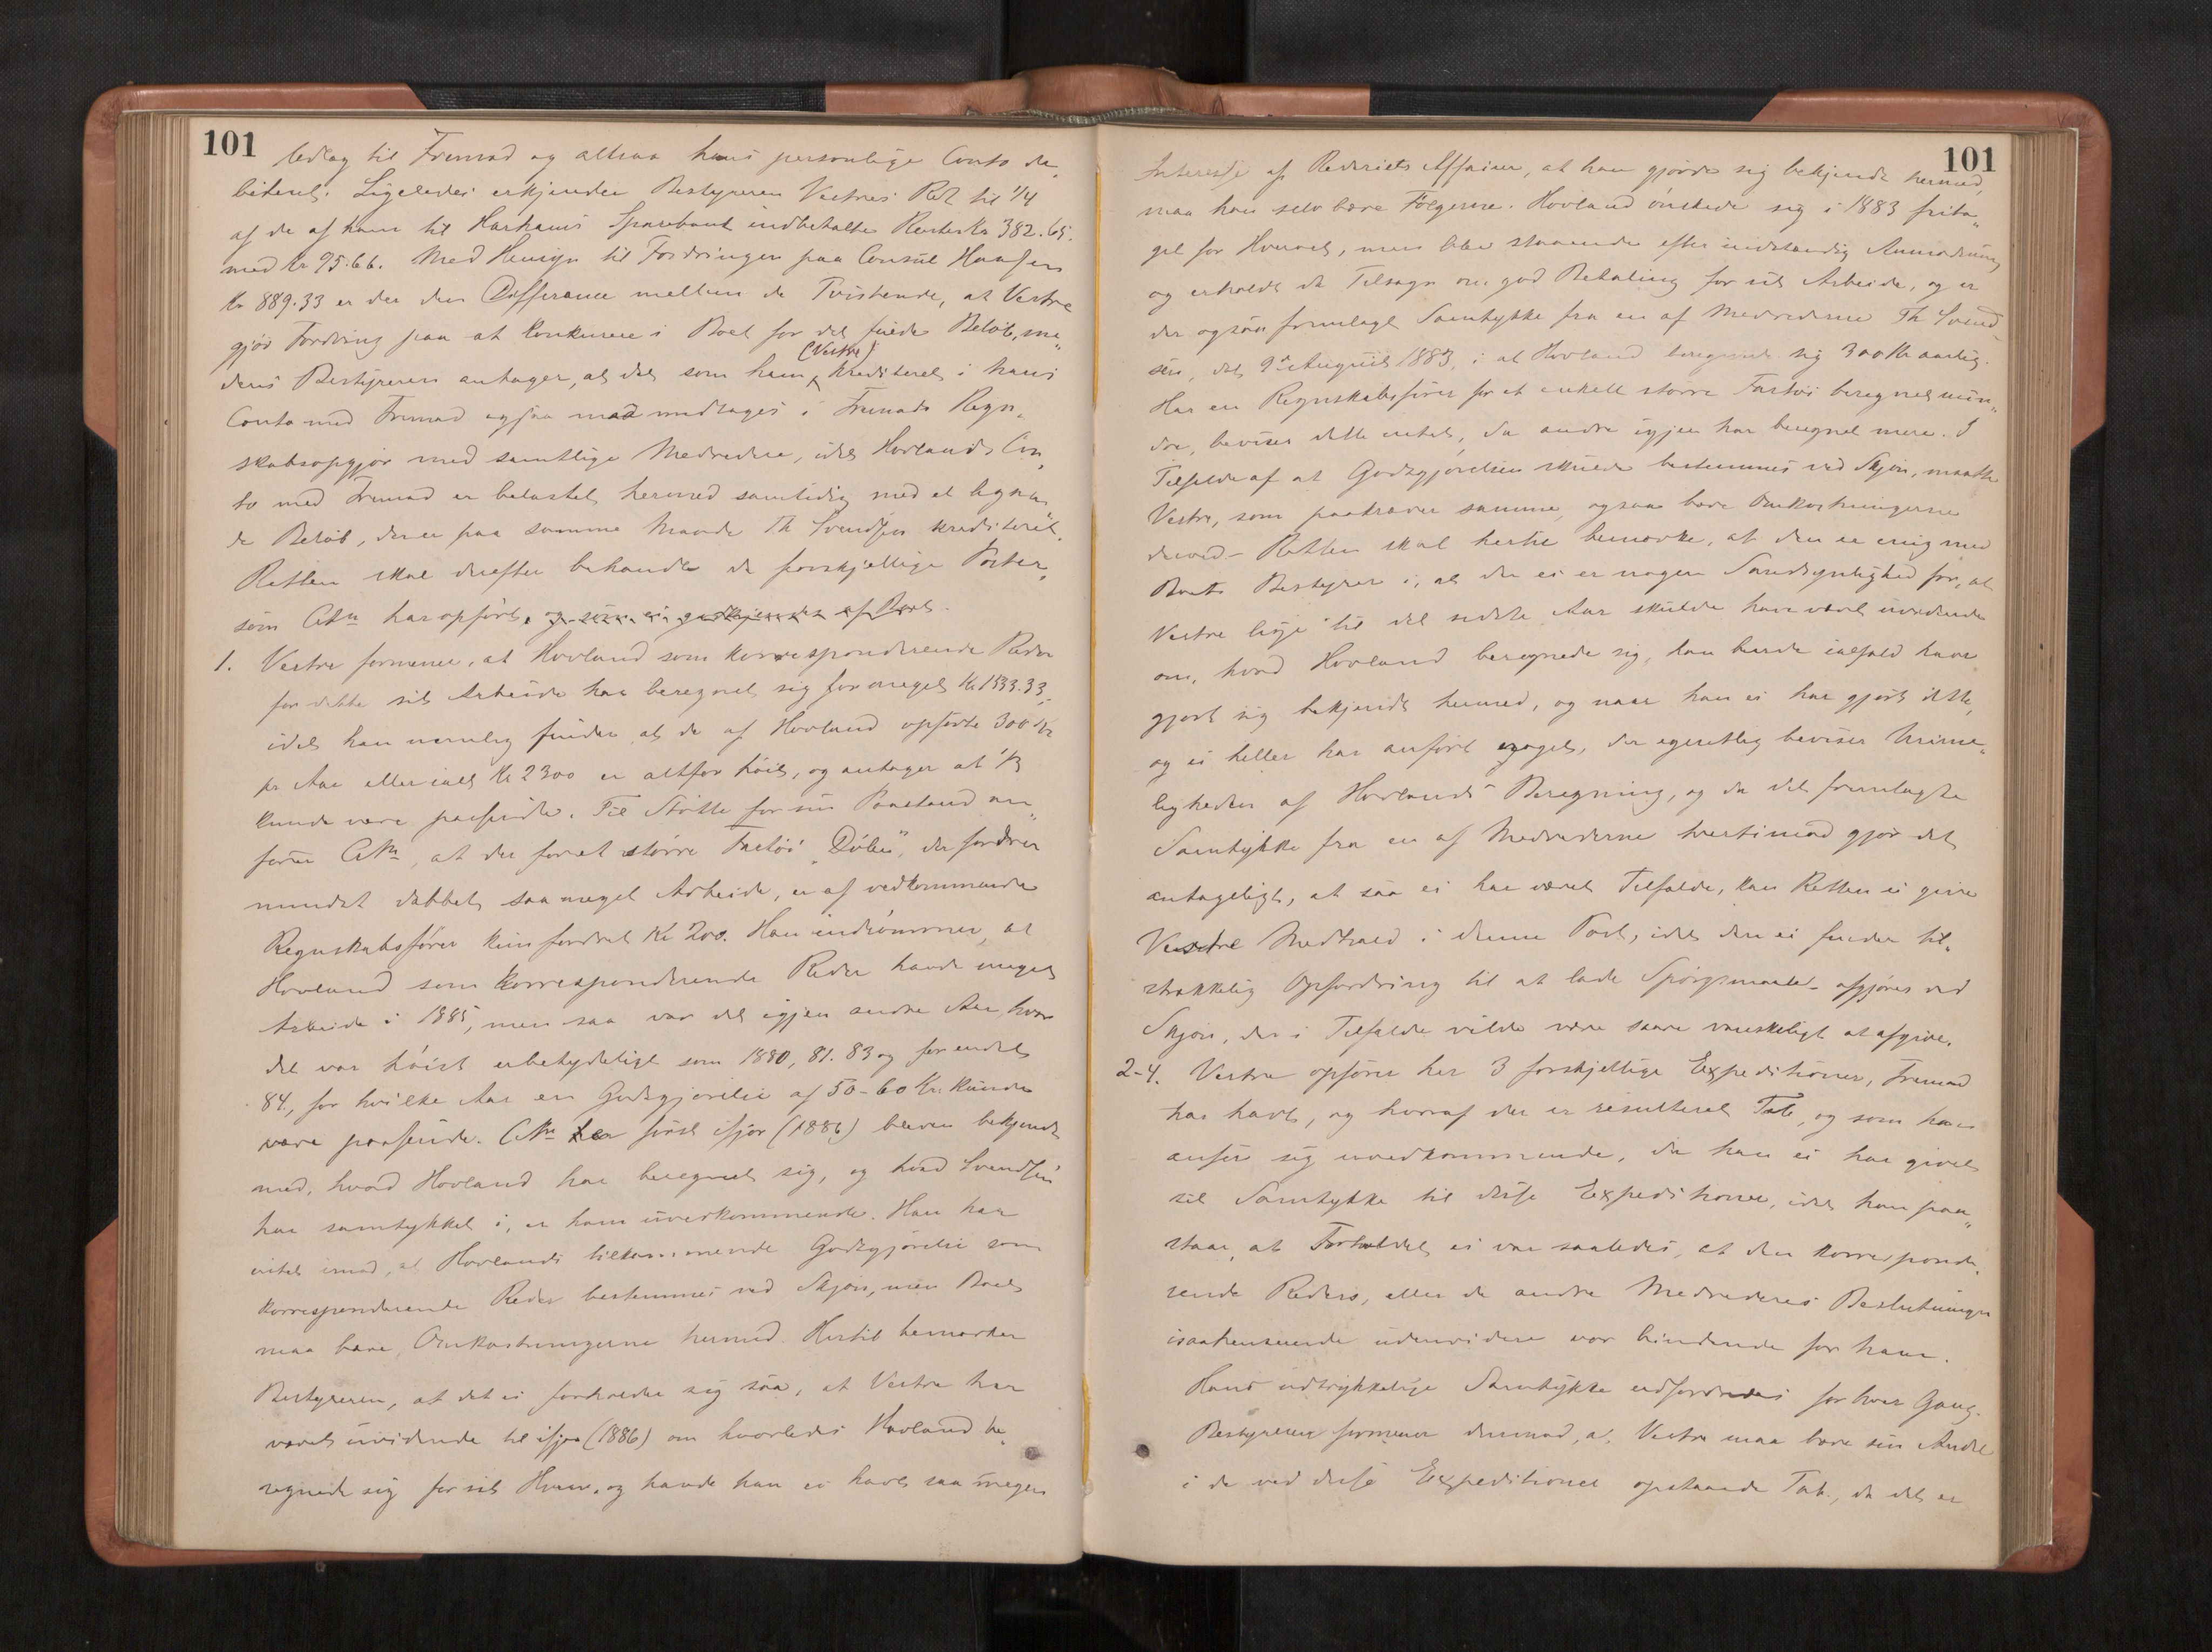 101
bidrag til Fremad og altsaa hans personlige Conto de„
biteret. Ligeledes erkjender Bestyreren Vestres Ret til 1/4
af de af ham til Harhams Sparebank indbetalte Renter Kr 382.65.
med Kr 95.66. Med Hensyn til Fordringen paa Consul Haafen
Kr 889.33 er der den Differance mellem de Tvistende, at Vestre
gjør Fordring paa at konkurere i Boet for det fulde Beløb, me„
dens Bestyreren antager, at det som ham (Vestre) krediteret i hans
Conto med Fremad ogsaa maa medtages i Fremads Regn„
skabsopgjør med samtlige Medredere, idet Hovlands Con„
to med Fremad er belastet hermed samtidig med et lignen„
de Beløb, der er paa samme Maade Th Svendsen krediteret.
Retten skal derefter behandle de forskjellige Poster,
som Citn har opført, og som ei godkjendes af Boet.
1. Vestre formener, at Hovland som korresponderende Reder
for dette sit Arbeide har beregnet sig for meget Kr 1533.33,
idet han nemlig finder at de af Hovland opførte 300 Kr
pr Aar eller ialt Kr 2300 er altfor høit, og antager at 1/3
kunde være passende. Til Støtte for sin Paastand an„
fører Citn, at der for et større Fartøi „Dølen“, der fordrer
mindst dobbelt saa meget Arbeide, er af vedkommende
Regnskabsfører kun fordret Kr 200. Han indrømmer, at
Hovland som korresponderende Reder havde meget
Arbeide i 1885, men saa var det igjen andre Aar, hvor
det var høist ubetydeligt som 1880, 81. 83 og for endel
84., for hvilke Aar en Godtgjørelse af 50-60 Kr. kunde
være passende. Citn har først ifjor (1886) bleven bekjendt
med, hvad Hovland har beregnet sig, og hvad Svendsen
har samtykket i, er ham uvedkommende. Han har
intet imod, at Hovlands tilkommende Godtgjørelse som
korresponderende Reder bestemmes ved Skjøn, men Boet
maa bære Omkostningerne hermed. Hertil bemærker
Bestyreren, at det ei forholder sig saa, at Vestre har
været uvidende til ifjor (1886) om hvorledes Hovland be„
regnede sig for sit Hverv, og havde han ei havt saa megen
101
Interesse af Rederiets Affairer, at han gjorde sig bekjendt hermed,
maa han selv bære Følgerne. Hovland ønskede sig i 1883 frita„
get for Hvervet, men blev staaende efter indstændig Anmodning
og erholdt da Tilsagn om god Betaling for sit Arbeide, og er
der ogsaa fremlagt Samtykke fra en af Medrederne Th Svend„
sen, dat 9de August 1883, i at Hovland beregnede sig 300 Kr aarlig.
Har en Regnskabsfører for et enkelt større Fartøi beregnet min„
dre, beviser dette intet, da andre igjen har beregnet mere. I
Tilfælde af at Godtgjørelsen skulde bestemmes ved Skjøn, maatte
Vestre, som paakræver samme, ogsaa bære Omkostningerne
derved. Retten skal hertil bemærke, at den er enig med
Boets Bestyrer i, at der ei er nogen Sandsynlighed for, at
Vestre lige til det sidste Aar skulde have været uvidende
om, hvad Hovland beregnede sig, han burde ialfald have
gjort sig bekjendt hermed, og naar han ei har gjort dette,
og ei heller har anført noget, der egentlig beviser Urime„
ligheden af Hovlands Beregning, og da det fremlagte
Samtykke fra en af Medrederne tvertimod gjør det
antageligt, at saa ei har været Tilfælde, kan Retten ei give
Vestre Medhold i denne Post, idet den ei finder til„
strækkelig Opfordring til at lade Spørgsmaalet afgjøres ved
Skjøn, der i Tilfælde vilde være saare vanskeligt at afgive.
2-4. Vestre opfører her 3 forskjellige Expeditioner, Fremad
har havt, og hvoraf der er resulteret Tab, og som han
anser sig uvedkommende, da han ei har givet
sit Samtykke til disse Expeditioner, idet han paa„
staar, at Forholdet ei var saaledes, at den korresponde„
rende Reders, eller de andre Medrederes Beslutninger
isaahenseende udenvidere var bindende for ham.
Hans udtrykkelige Samtykke udfordredes for hver Gang.
Bestyreren formener derimod, at Vestre maa bære sin Andel
i de ved disse Expeditioner opstaaede Tab, da det er